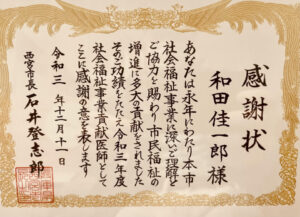 感謝状
和田佳一郎 様
あなたは永年にわたり本市
社会福祉事業に深いご理解と
ご協力を賜わり市民福祉の
増進に多大の貢献をされました
そのご功績をたたえ令和三年度
社会福祉事業貢献医師として
ここに感謝の意を表します
令和三年十二月十一日
西宮市長 石井登志郎